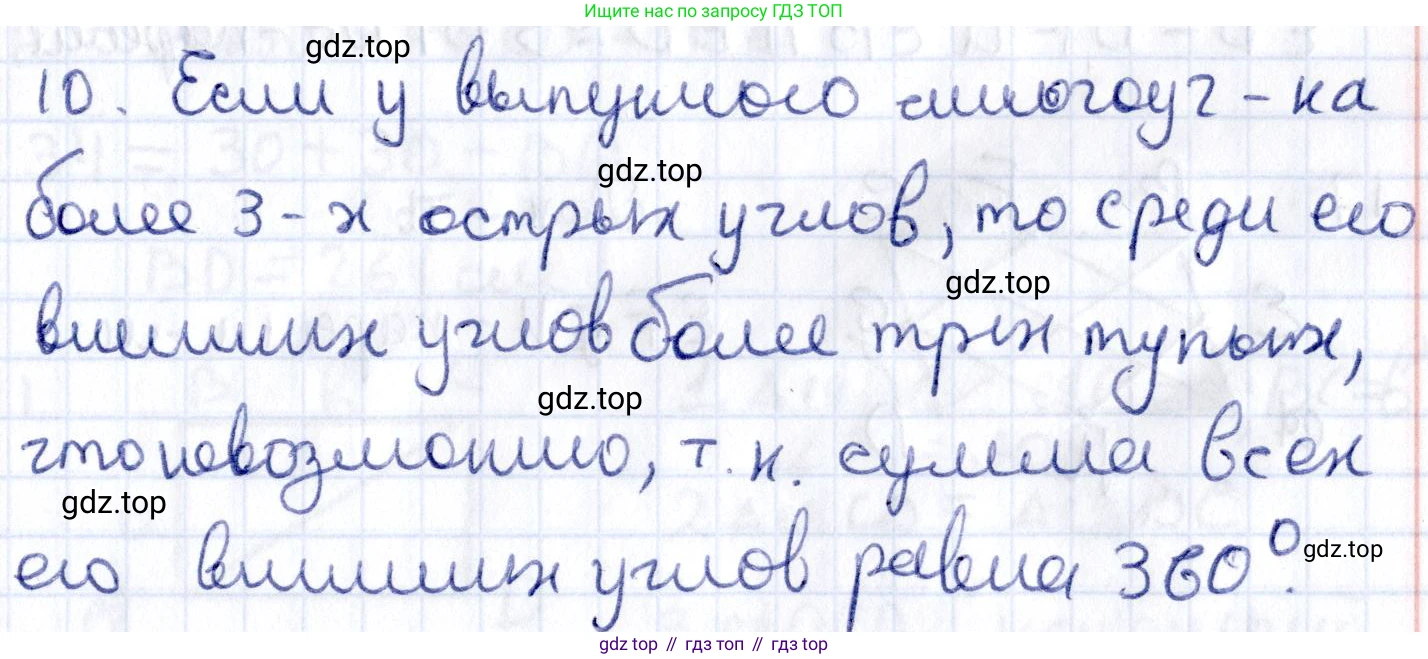 Ищите нас по запросу ГДЗ ТОП
gdz.top
10. Если у выпуклого многоуг-ка
gdz.top
более 3-х острых углов, то среди его
gdz.top
внешних углов более трех тупых,
gdz.top
что невозможно, т.к. сумма всех
gdz.top
его внешних углов равна 360°.
gdz.top
gdz.top // гдз топ // гдз top